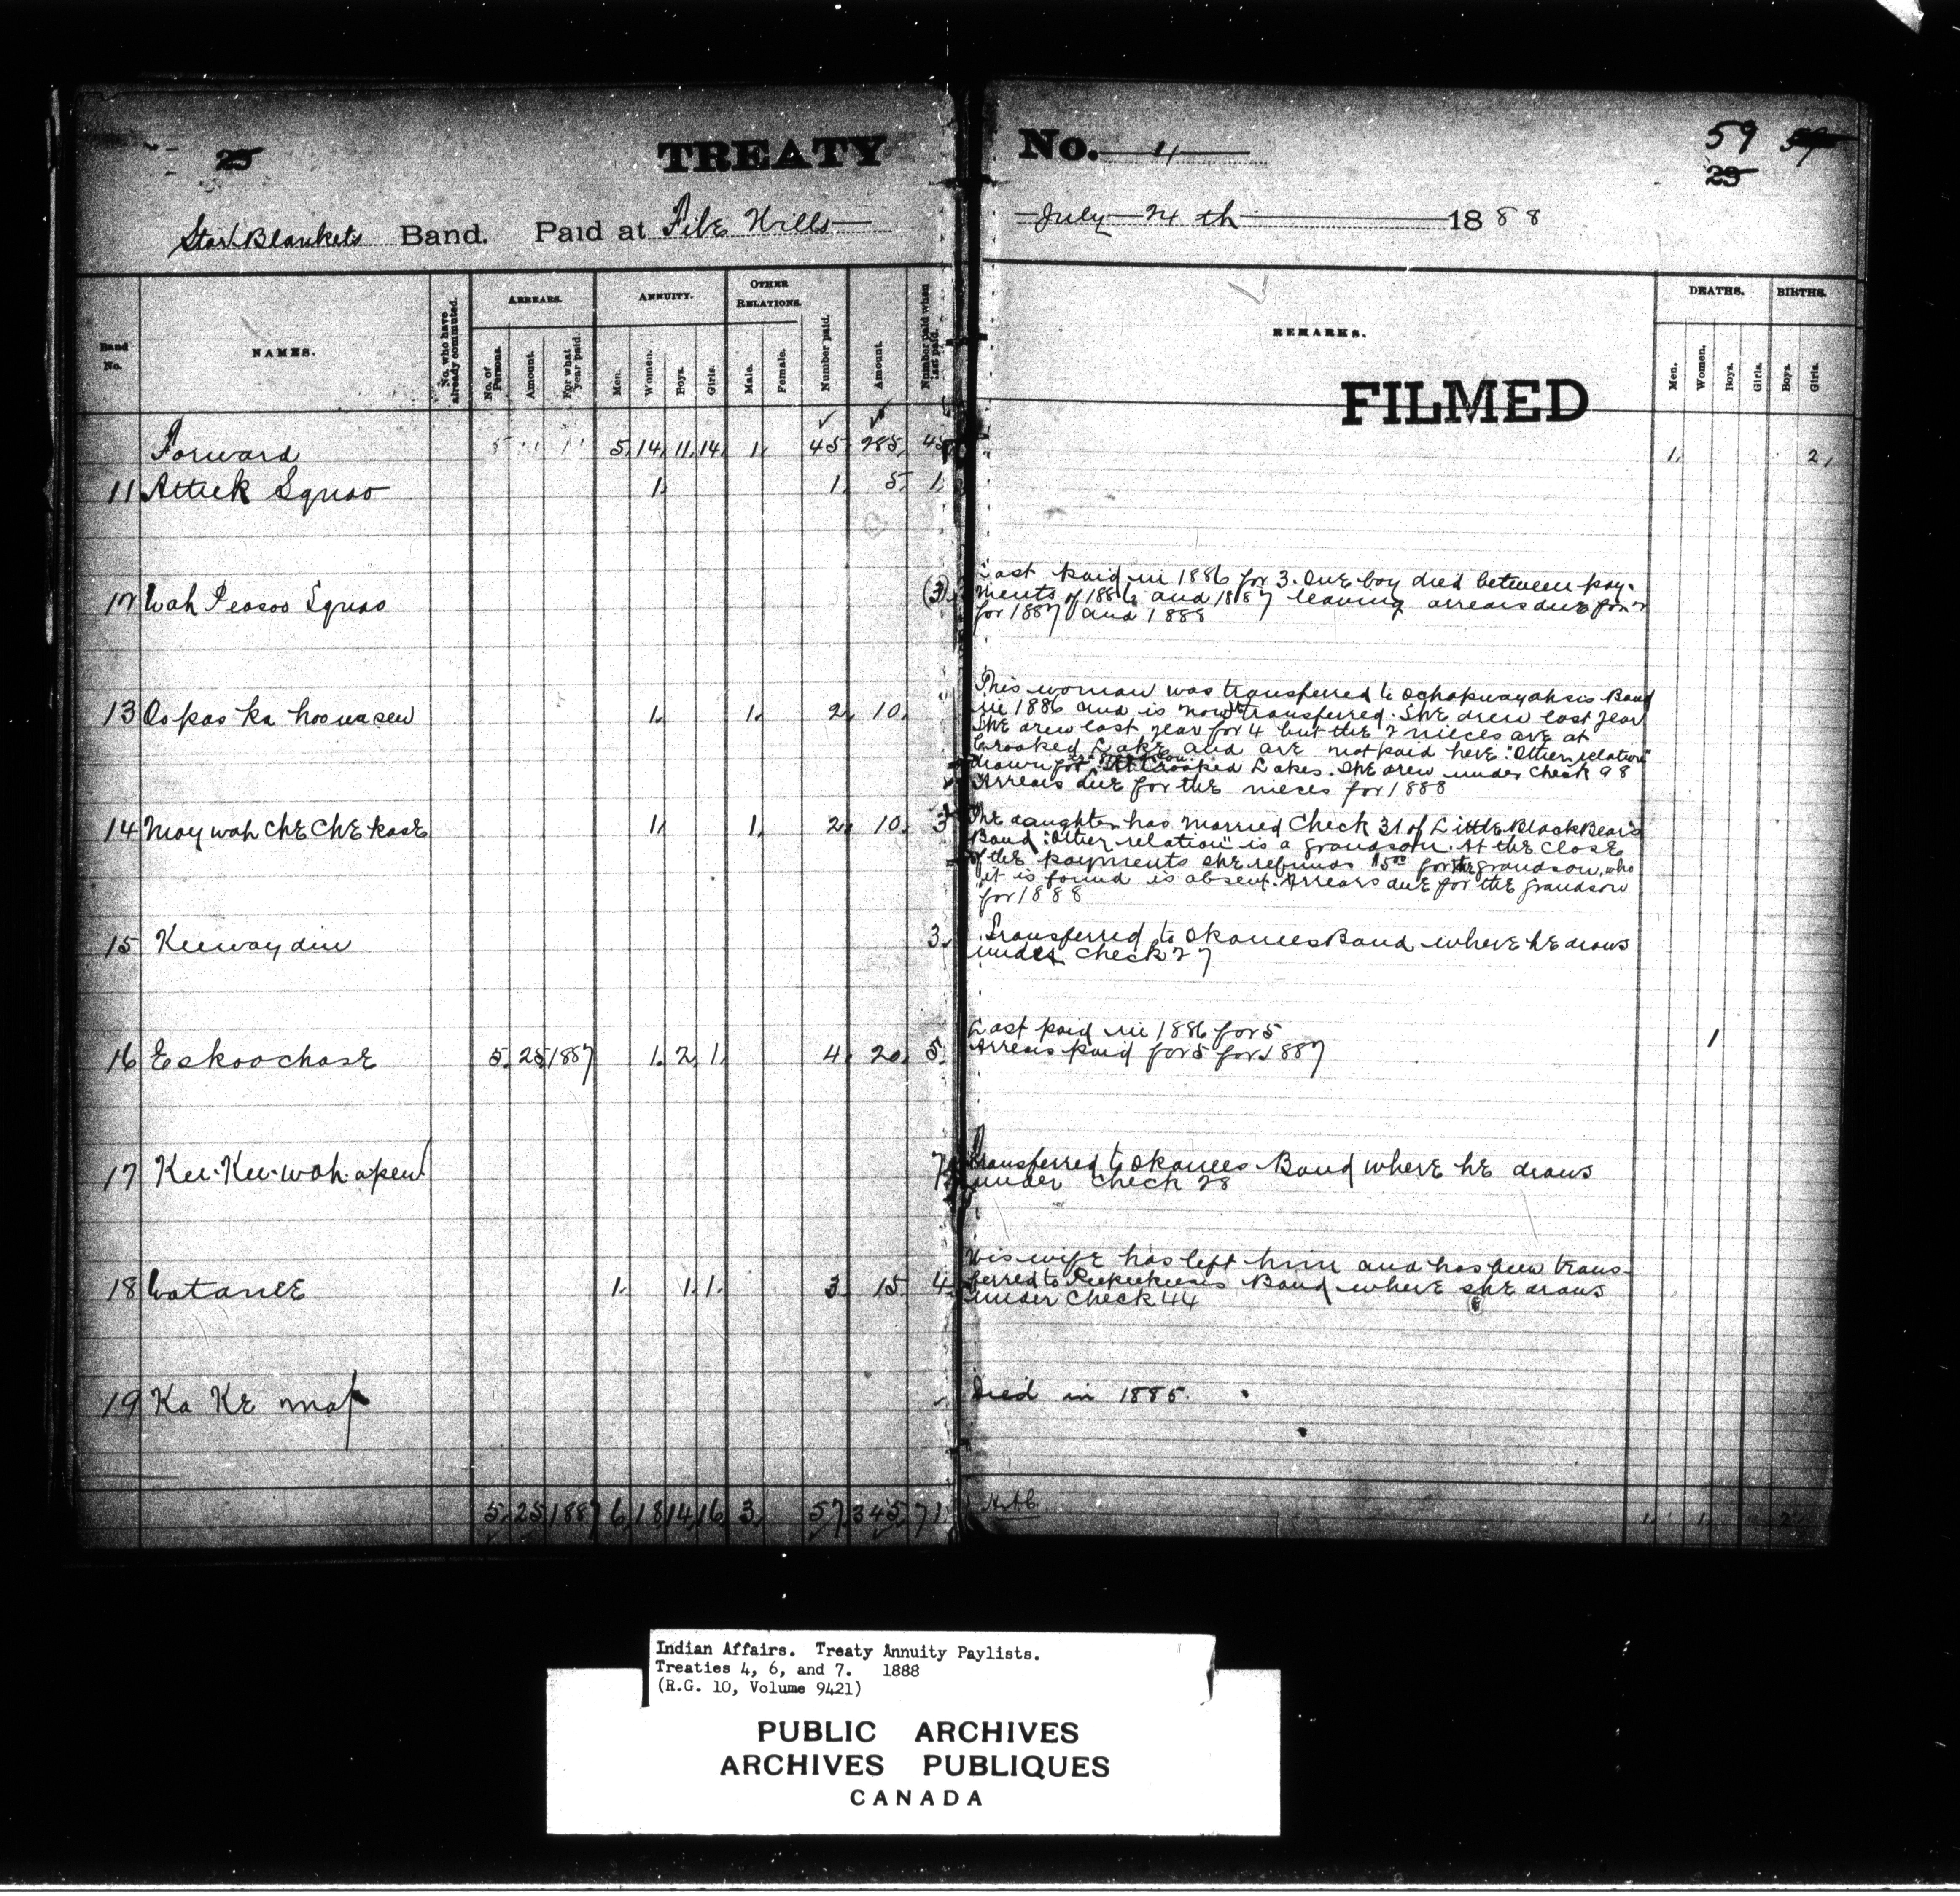 25 TREATY No. 4 59 59
25
Star Blankets Band. Paid at File Hills July 24th 1888
Band No. NAMES. No. who have already commuted. ARREARS. No. of Persons. Amount. For what year paid. ANNUITY. Men. Women. Boys. Girls. OTHER RELATIONS. Male. Female. Number paid. Amount. Number paid when last paid. REMARKS. DEATHS. Men. Women. Boys. Girls. BIRTHS. Boys. Girls.
FILMED
Forward 5 14 11 14 1 45 285 45 1 2
11 Attick Squao 1 1 5 1
12 Wah Peasoo Squao (3) Last paid in 1886 for 3. One boy died between pay-
ments of 1886 and 1887 leaving arrears due for 2
for 1887 and 1888
13 Oo pas ka hoo wa sew 1 1 2 10 This woman was transferred to Ochapwayahsis Band
in 1886 and is now transferred. She drew last year
She drew last year for 4 but the 2 nieces are at
Crooked Lake and are not paid here. "Other relation"
drawn for Crooked Lakes. She drew under Check 98
Arrears due for the nieces for 1888
14 May wah che che kase 1 1 2 10 3 The daughter has married Check 31 of Little Black Bear's
Band. "Other relation" is a grandson. At the close
of the payments she refunds $5.00 for the grandson, who
it is found is absent. Arrears due for the grandson
for 1888
15 Keeway din 3 Transferred to Okanees Band where he draws
under Check 27
16 Eskoochase 5 25 1887 1 2 1 4 20 5 Last paid in 1886 for 5 1
Arrears paid for 5 for 1887
17 Kee-Kee-wah-apew 7 Transferred to Okanees Band where he draws
under Check 28
18 Watanee 1 1 1 3 15 4 His wife has left him and has been trans-
ferred to Peekeekeesis Band where she draws
under Check 44
19 Ka Ke map Died in 1885.
5 25 1887 6 18 14 16 3 57 345 71 1 1 2
Indian Affairs. Treaty Annuity Paylists.
Treaties 4, 6, and 7. 1888
(R.G. 10, Volume 9421)
PUBLIC ARCHIVES
ARCHIVES PUBLIQUES
CANADA